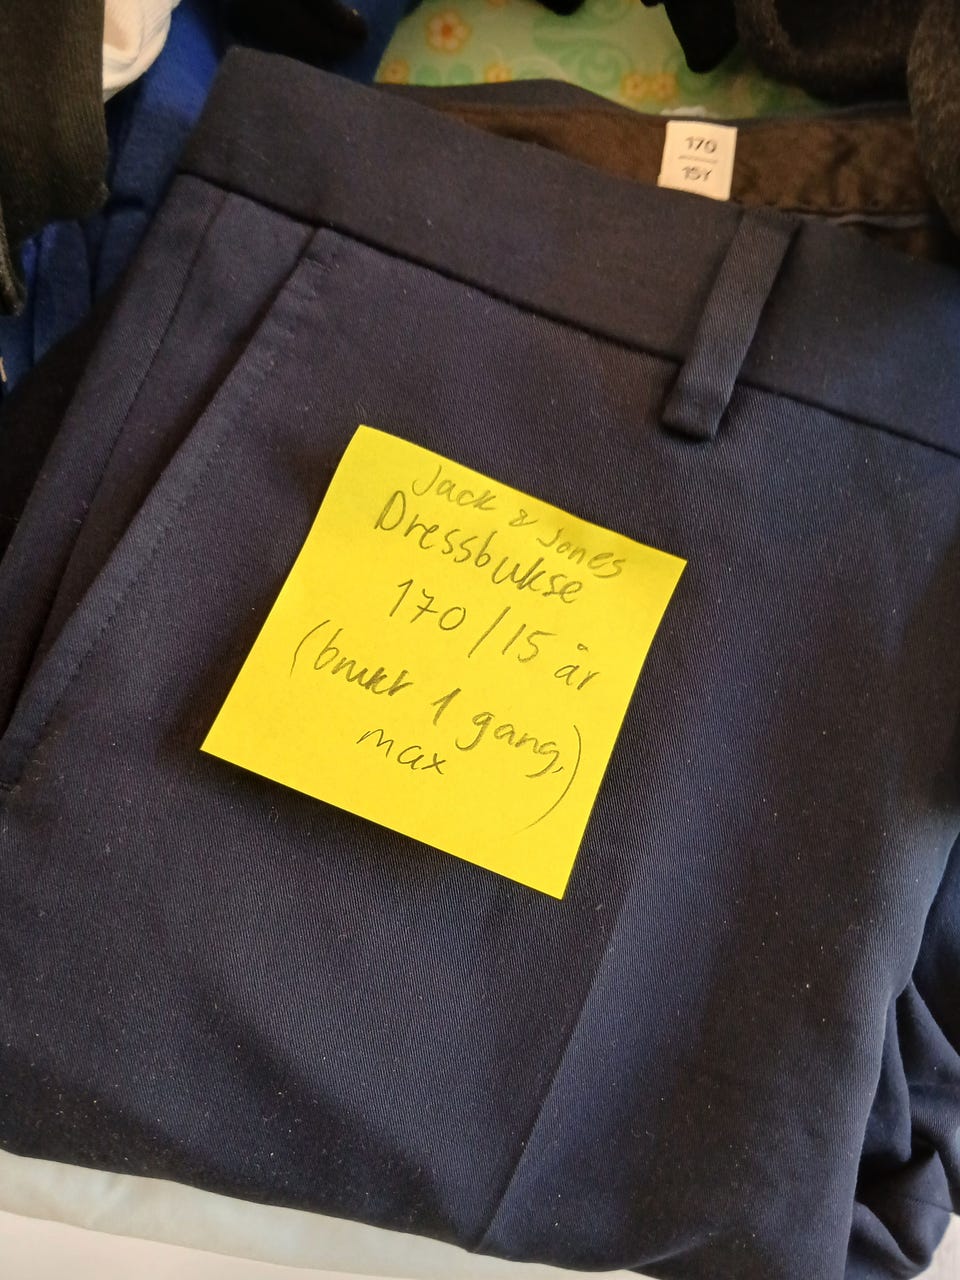 170
15Y
Jack & Jones
Dressbukse
170/15 år
(brukt 1 gang,)
max